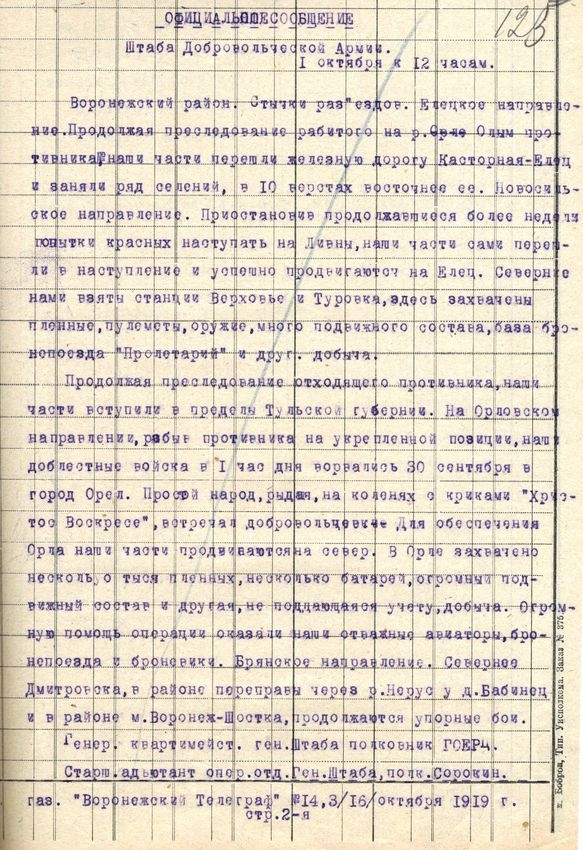 125
ОФИЦИАЛЬНОЕ СООБЩЕНИЕ
Штаба Добровольческой Армии.
I октября к I2 часам.
Воронежский район. Стычки раз"ездов. Елецкое направле-
ние.Продолжая преследование рабитого на р.Орле Олым про-
тивника,наши части перешли железную дорогу Касторная-Елец
и заняли ряд селений, в IO верстах восточнее ее. Новосиль-
ское направление. Приостановив продолжавшиеся более недели
попытки красных наступать на Ливны,наши части сами переш-
ли в наступление и успешно продвигаются на Елец. Северние
нами взяты станции Верховье и Туровка,здесь захвачены
пленные,пулеметы,оружие,много подвижного состава,база бро-
непоезда "Пролетарий" и друг. добыча.
Продолжая преследование отходящего противника,наши
части вступили в пределы Тульской губернии. На Орловском
направлении,рабыв противника на укрепленной позиции,наши
доблестные войска в I час дня ворвались 30 сентября в
город Орел. Простой народ,рыдая,на коленях с криками "Хрис-
тос Воскресе",встречал добровольцев Для обеспечения
Орла наши части продвигаютсяна север. В Орле захвачено
несколько тысяч пленных,несколько батарей,огромный под-
вижный состав и другая,не поддающаяся учету,добыча. Огром-
ную помощь операции оказали наши отважные авиаторы,бро-
непоезда и броневики. Брянское направление. Севернее
Дмитровска,в районе переправы через р.Нерус у д.Бабинец
и в районе м.Воронеж-Шостка,продолжаются упорные бои.
Генер. квартимейст. ген.Штаба полковник ГОЕРЦ.
Старш.адъютант опер.отд.Ген.Штаба,полк.Сорокин.
газ. "Воронежский Телеграф" №I4,3/I6/октября I9I9 г.
стр.2-я
г. Бобров, Тип. Уисполкома. Заказ № 375